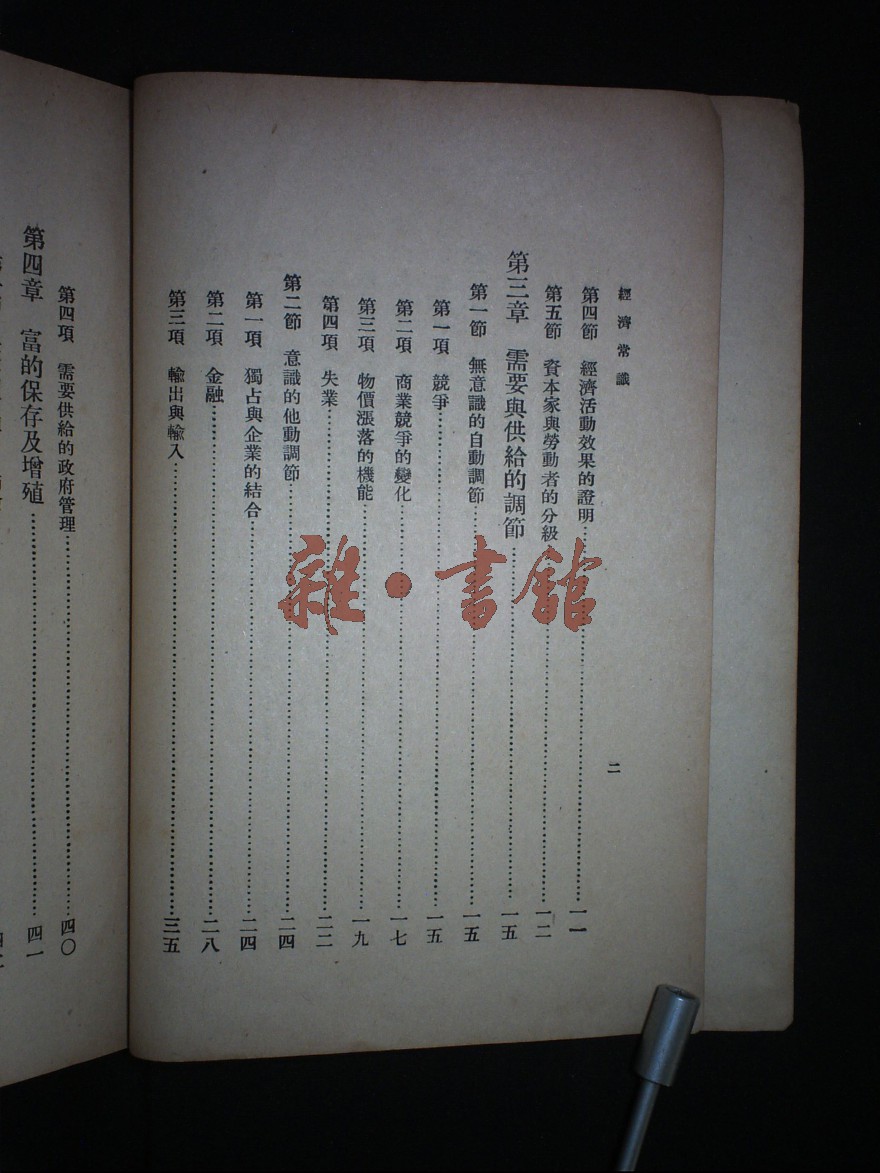 經濟常識
二
第四節 經濟活動效果的證明⋯⋯一一
第五節 資本家與勞動者的分級⋯⋯一二
第三章 需要與供給的調節⋯⋯一五
第一節 無意識的自動調節⋯⋯一五
第一項 競爭⋯⋯一五
第二項 商業競爭的變化⋯⋯一七
第三項 物價漲落的機能⋯⋯一九
第四項 失業⋯⋯二二
第二節 意識的他動調節⋯⋯二四
第一項 獨占與企業的結合⋯⋯二四
第二項 金融⋯⋯二八
第三項 輸出與輸入⋯⋯三五
第四項 需要供給的政府管理⋯⋯四〇
第四章 富的保存及增殖⋯⋯四一
雜·書館